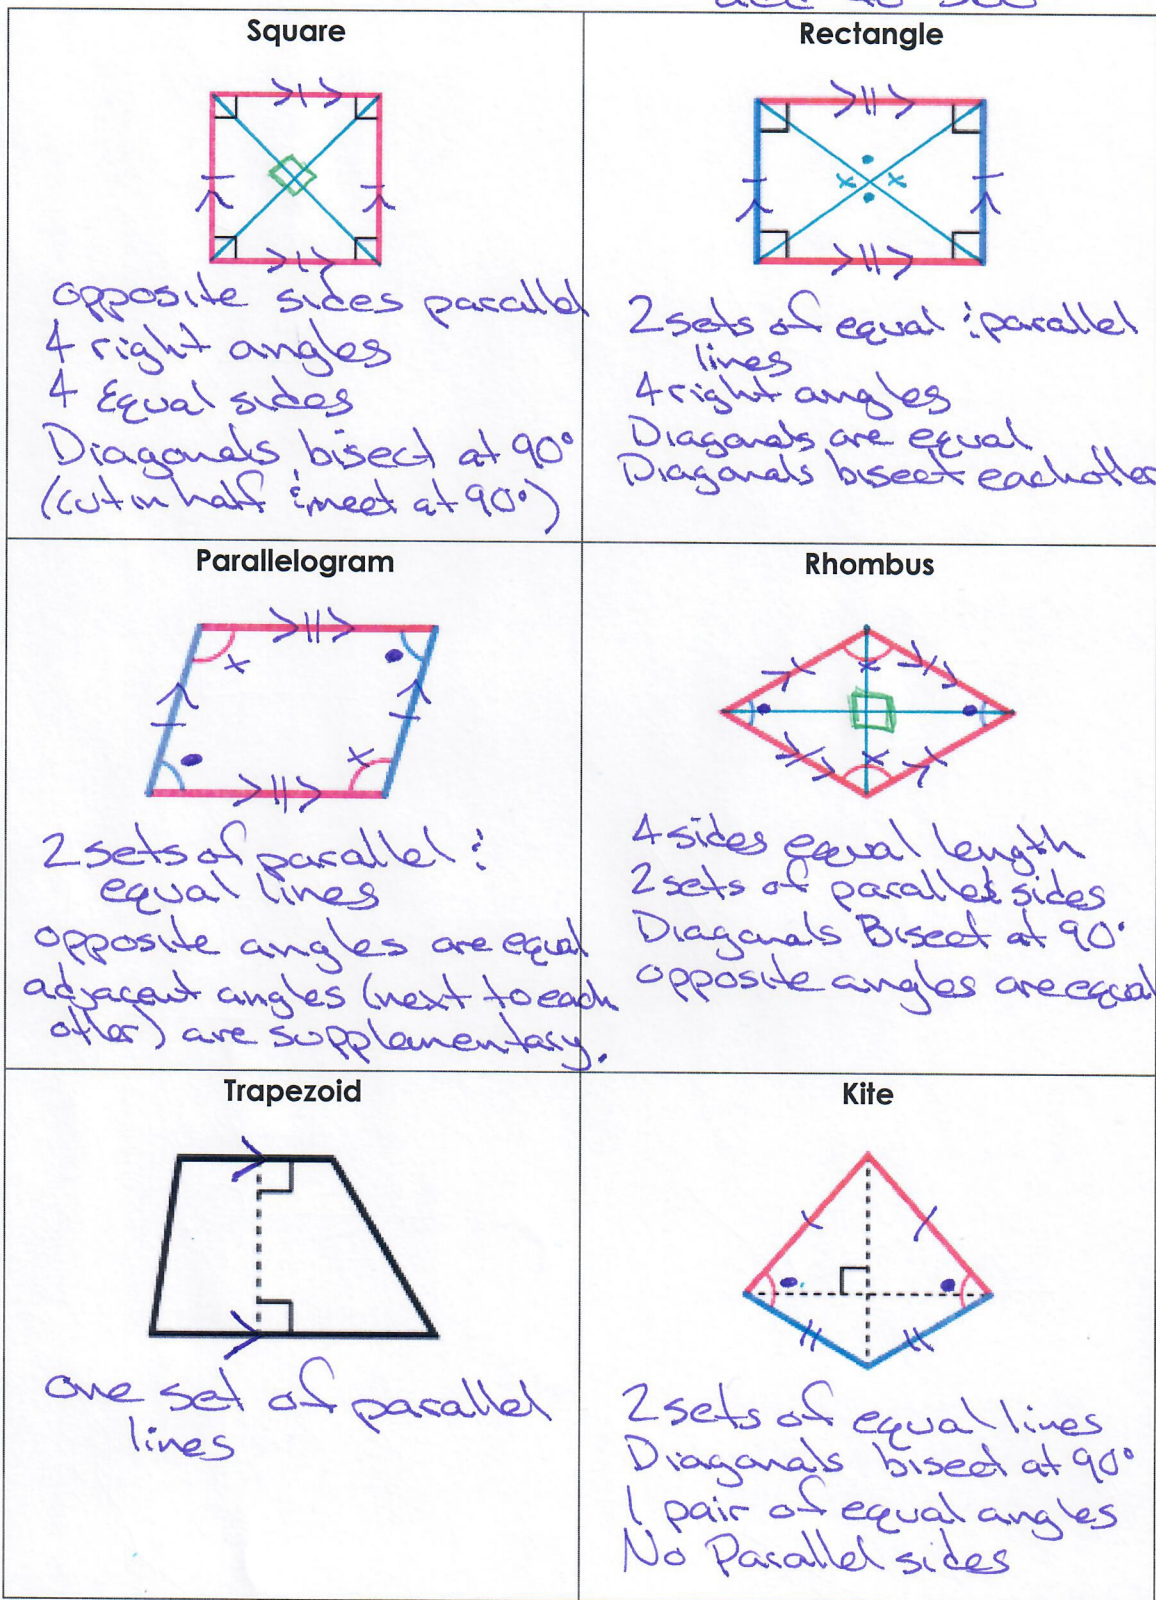 Square
opposite sides parallel
4 right angles
4 Equal sides
Diagonals bisect at 90°
(cut in half & meet at 90°)
Rectangle
2 sets of equal & parallel
lines
4 right angles
Diagonals are equal
Diagonals bisect eachother
Parallelogram
2 sets of parallel &
equal lines
opposite angles are equal
adjacent angles (next to each
other) are supplementary.
Rhombus
4 sides equal length
2 sets of parallel sides
Diagonals Bisect at 90°
opposite angles are equal
Trapezoid
one set of parallel
lines
Kite
2 sets of equal lines
Diagonals bisect at 90°
1 pair of equal angles
No Parallel sides